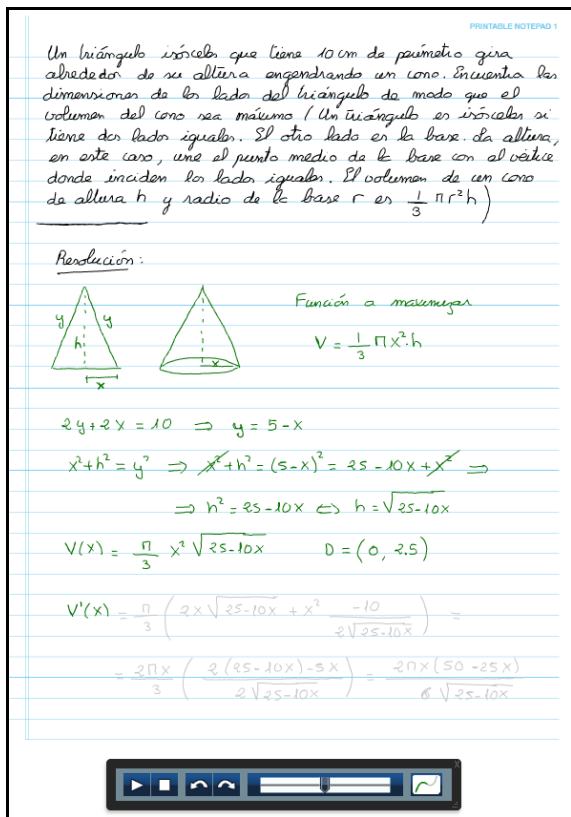 PRINTABLE NOTEPAD 1
Un triángulo isósceles que tiene 10 cm de perímetro gira
alrededor de su altura engendrando un cono. Encuentra las
dimensiones de los lados del triángulo de modo que el
volumen del cono sea máximo (Un triángulo es isósceles si
tiene dos lados iguales. El otro lado es la base. La altura,
en este caso, une el punto medio de la base con el vértice
donde inciden los lados iguales. El volumen de un cono
de altura h y radio de la base r es 1/3 πr²h)
Resolución:
y y
h
x
x
Función a maximizar
V = 1/3 πx²·h
2y+2x = 10 ⇒ y = 5-x
x²+h² = y² ⇒ x²+h² = (5-x)² = 25 - 10x + x² ⇒
⇒ h² = 25-10x ⇔ h = √(25-10x)
V(x) = π/3 x² √(25-10x) D = (0, 2.5)
V'(x) = π/3 (2x√(25-10x) + x² -10/(2√(25-10x))) =
= 2πx/3 ((2(25-10x)-5x)/(2√(25-10x))) = 2πx(50-25x)/(6√(25-10x))